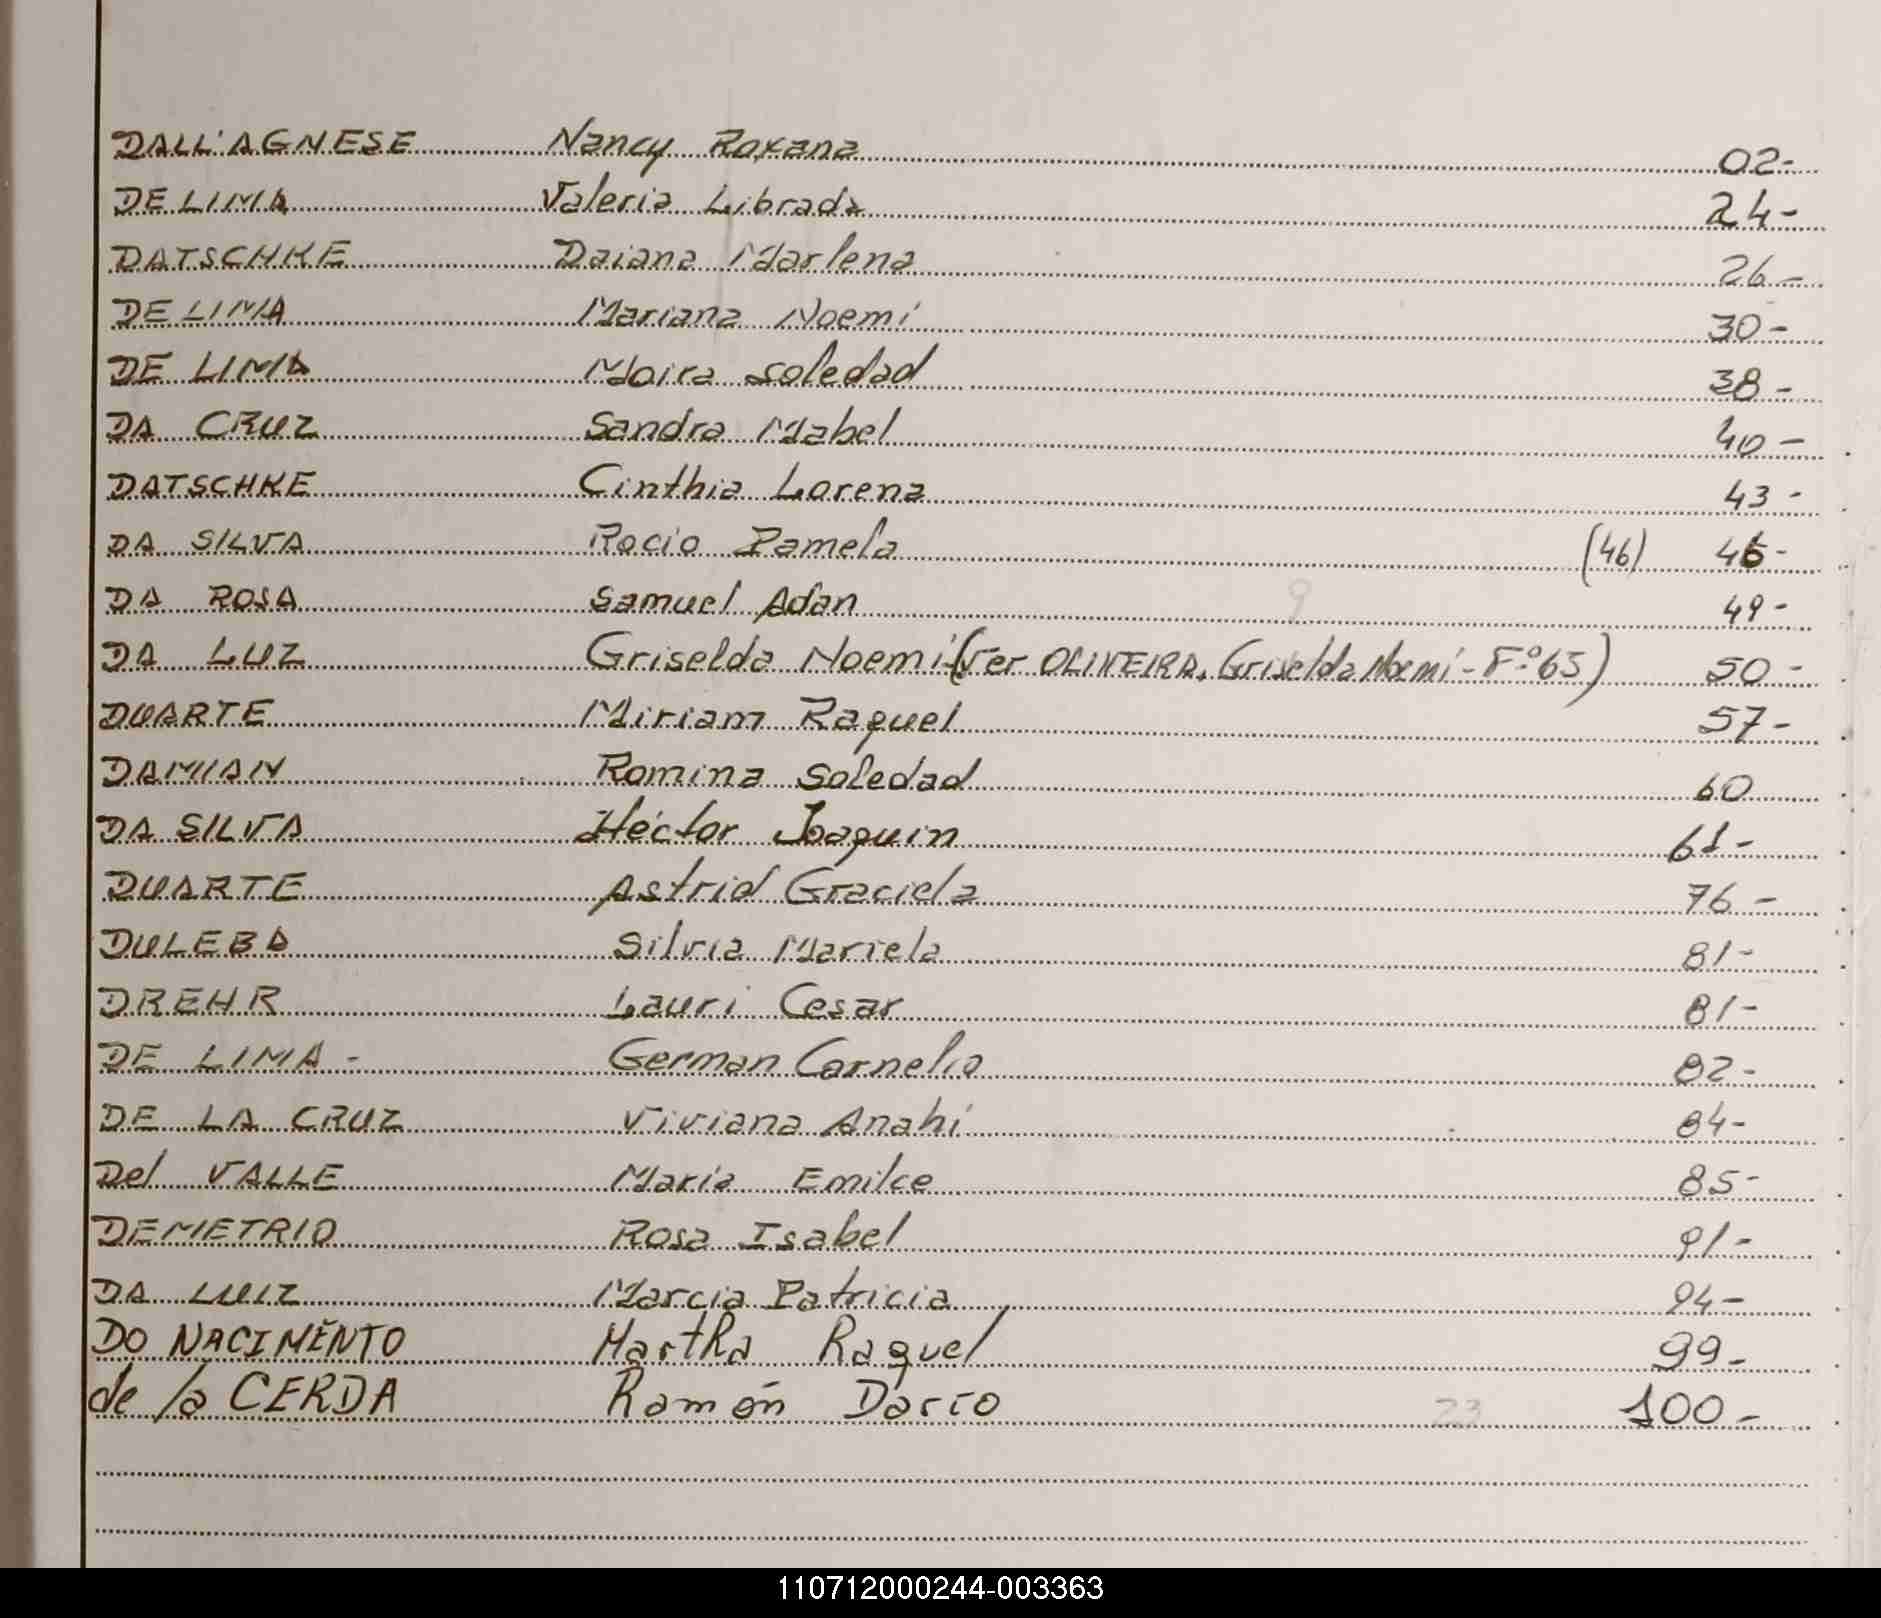 DALL'AGNESE Nancy Roxana 02-
DE LIMA Valeria Librada 24-
DATSCHKE Daiana Marlena 26-
DE LIMA Mariana Noemí 30-
DE LIMA Moira Soledad 38-
DA CRUZ Sandra Mabel 40-
DATSCHKE Cinthia Lorena 43-
DA SILVA Rocio Pamela (46) 46-
DA ROSA Samuel Adan 9 49-
DA LUZ Griselda Noemí (Ver OLIVEIRA, Griselda Noemí - Fº 65) 50-
DUARTE Miriam Raquel 57-
DAMIAN Romina Soledad 60
DA SILVA Héctor Joaquin 61-
DUARTE Astrid Graciela 76-
DULEBA Silvia Mariela 81-
DREHR Lauri Cesar 81-
DE LIMA - German Cornelio 82-
DE LA CRUZ Viviana Anahí 84-
Del VALLE María Emilce 85-
DEMETRIO Rosa Isabel 91-
DA LUIZ Marcia Patricia 94-
DO NACIMENTO Martha Raquel 99-
de la CERDA Ramón Darío 23 100-
110712000244-003363